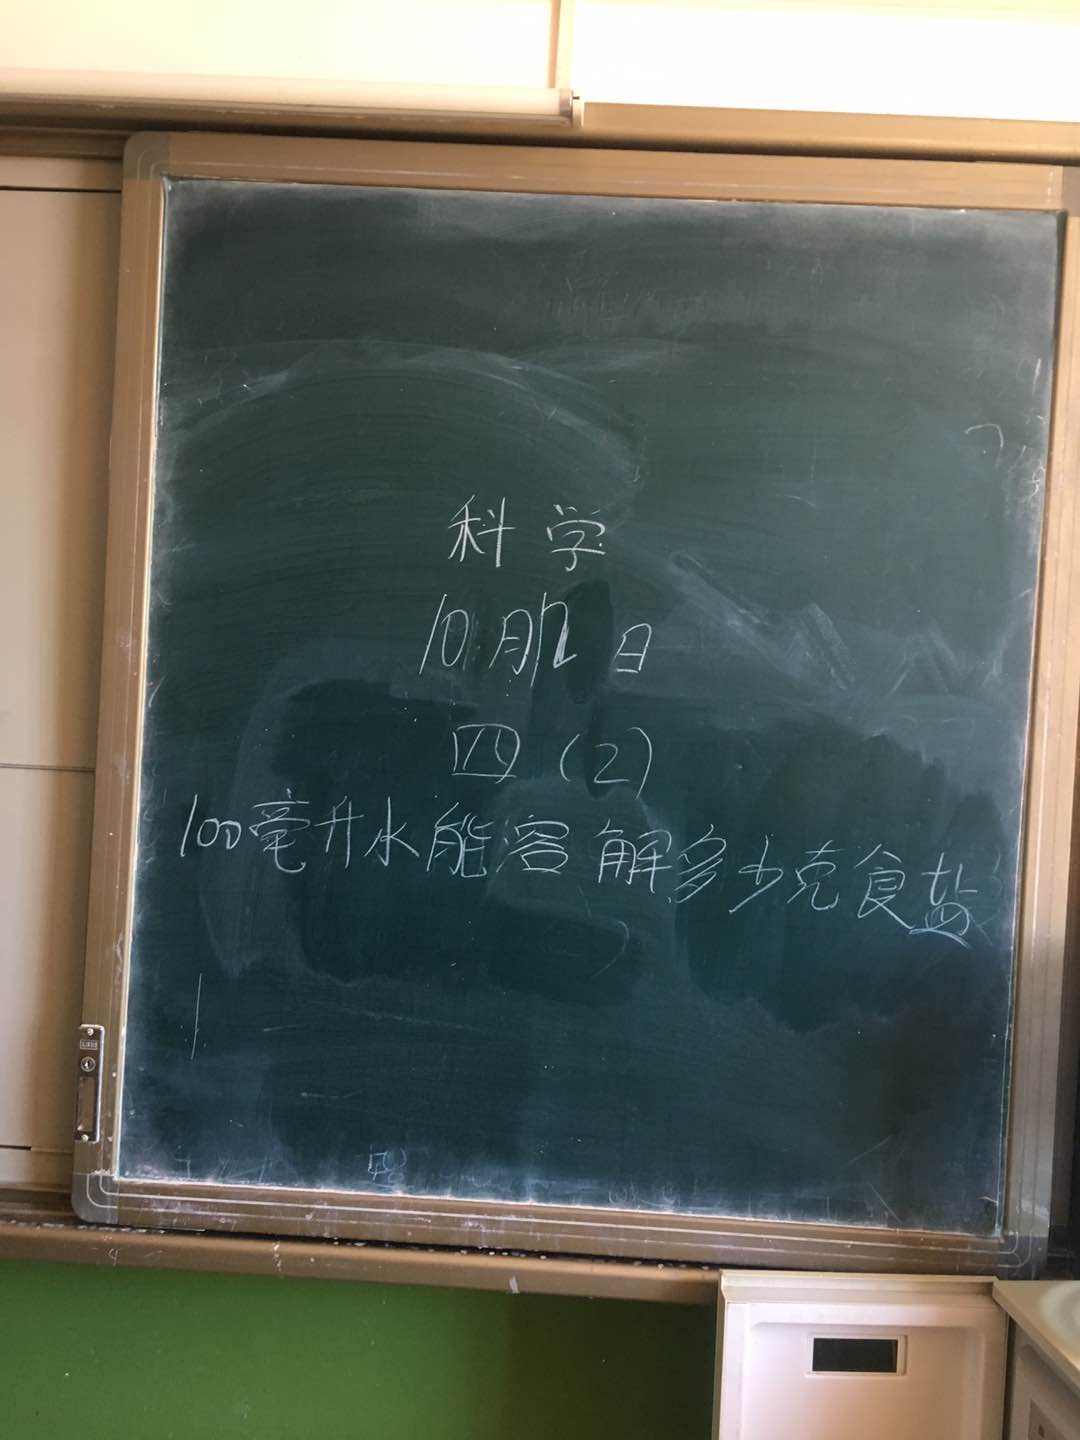 科学
10月12日
四(2)
100毫升水能溶解多少克食盐